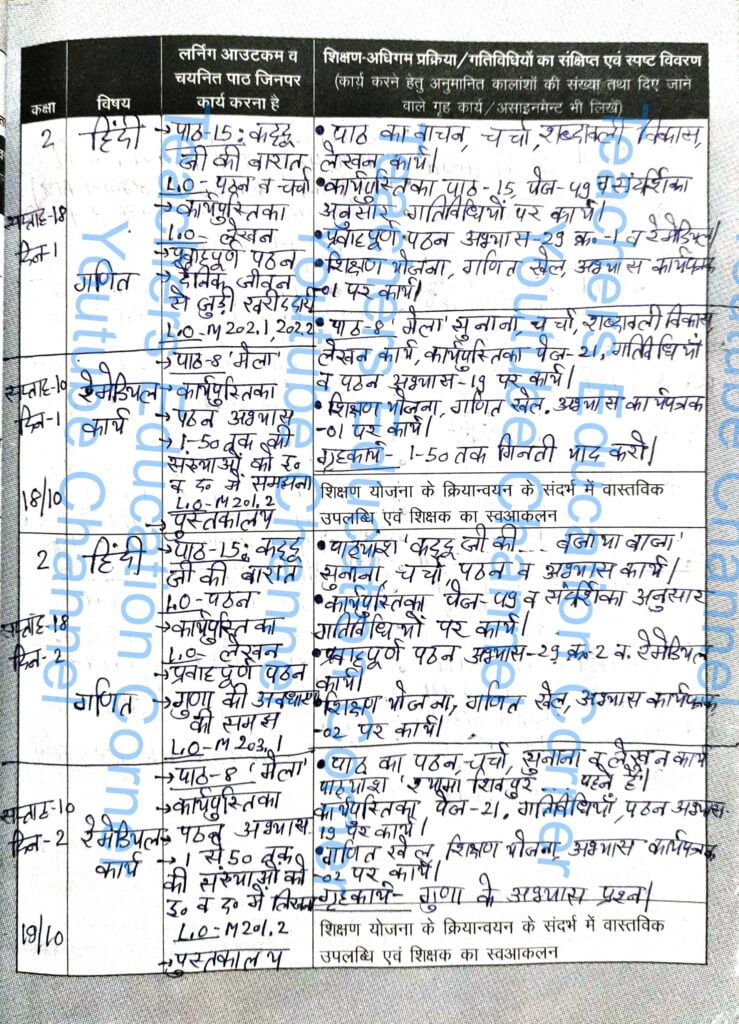 कक्षा
विषय
लर्निंग आउटकम व
चयनित पाठ जिनपर
कार्य करना है
शिक्षण-अधिगम प्रक्रिया/गतिविधियों का संक्षिप्त एवं स्पष्ट विवरण
(कार्य करने हेतु अनुमानित कालांशों की संख्या तथा दिए जाने
वाले गृह कार्य/असाइनमेंट भी लिखें)
2
सप्ताह-18
दिन-1
हिंदी
गणित
→पाठ-15: कद्दू
जी की बारात
L.O- पठन व चर्चा
→कार्यपुस्तिका
L.O- लेखन
→प्रवाहपूर्ण पठन
→दैनिक जीवन
से जुड़ी खरीददारी
L.O-M202.1, 202.2
• पाठ का वाचन, चर्चा, शब्दावली विकास,
लेखन कार्य।
•कार्यपुस्तिका पाठ-15, पेज-59 व संदर्शिका
अनुसार गतिविधियों पर कार्य।
•प्रवाहपूर्ण पठन अभ्यास-29 क्र.-1 व रेमेडियल।
•शिक्षण योजना, गणित खेल, अभ्यास कार्यपत्रक
-01 पर कार्य।
सप्ताह-10
दिन-1
18/10
रेमेडियल
कार्य
→पाठ-8 'मेला'
→कार्यपुस्तिका
→पठन अभ्यास
→1-50 तक की
संख्याओं को इ०
व द० में समझना
L.O-M201.2
→पुस्तकालय
• पाठ-8 'मेला' सुनाना, चर्चा, शब्दावली विकास
लेखन कार्य, कार्यपुस्तिका पेज-21, गतिविधियाँ
व पठन अभ्यास-19 पर कार्य।
•शिक्षण योजना, गणित खेल, अभ्यास कार्यपत्रक
-01 पर कार्य।
गृहकार्य- 1-50 तक गिनती याद करो।
शिक्षण योजना के क्रियान्वयन के संदर्भ में वास्तविक
उपलब्धि एवं शिक्षक का स्वआकलन
2
सप्ताह-18
दिन-2
हिंदी
गणित
→पाठ-15: कद्दू
जी की बारात
L.O-पठन
→कार्यपुस्तिका
L.O- लेखन
→प्रवाहपूर्ण पठन
→गुणा की अवधारणा
की समझ
L.O-M203.1
•पाठ्यांश 'कद्दू जी की... बजाया बाजा'
सुनाना, चर्चा, पठन व अभ्यास कार्य।
•कार्यपुस्तिका पेज-59 व संदर्शिका अनुसार
गतिविधियों पर कार्य।
•प्रवाहपूर्ण पठन अभ्यास-29 क्र.-2 व रेमेडियल
कार्य।
•शिक्षण योजना, गणित खेल, अभ्यास कार्यपत्रक
-02 पर कार्य।
सप्ताह-10
दिन-2
19/10
रेमेडियल
कार्य
→पाठ-8 'मेला'
→कार्यपुस्तिका
→पठन अभ्यास
→1 से 50 तक
की संख्याओं को
इ० व द० में लिखना
L.O-M201.2
→पुस्तकालय
• पाठ का पठन, चर्चा, सुनाना व लेखन कार्य
पाठ्यांश 'श्यामा शिवपुर ... पहने हैं।
कार्यपुस्तिका पेज-21, गतिविधियाँ, पठन अभ्यास-
19 पर कार्य।
•गणित खेल, शिक्षण योजना, अभ्यास कार्यपत्रक
-02 पर कार्य।
गृहकार्य- गुणा के अभ्यास प्रश्न।
शिक्षण योजना के क्रियान्वयन के संदर्भ में वास्तविक
उपलब्धि एवं शिक्षक का स्वआकलन
Teachers Education Corner
Youtube Channel
Teachers Education Corner
Youtube Channel
Teachers Education Corner
Youtube Channel